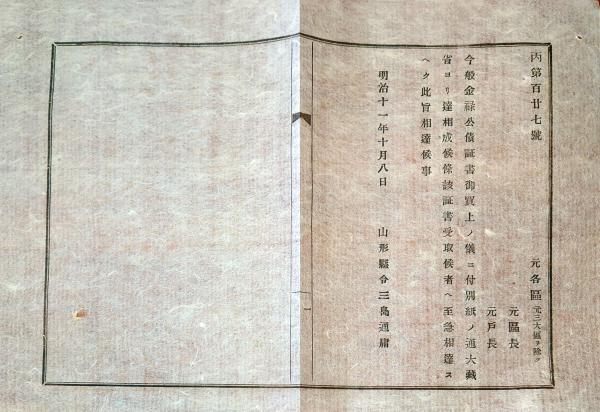 丙第百廿七號
元各區 元三大區ヲ除ク
元區長
元戸長
今般金祿公債証書御買上ノ儀ニ付別紙ノ通大藏
省ヨリ達相成候條該証書受取候者ヘ至急相達ス
ヘク此旨相達候事
明治十一年十月八日 山形縣令三島通庸